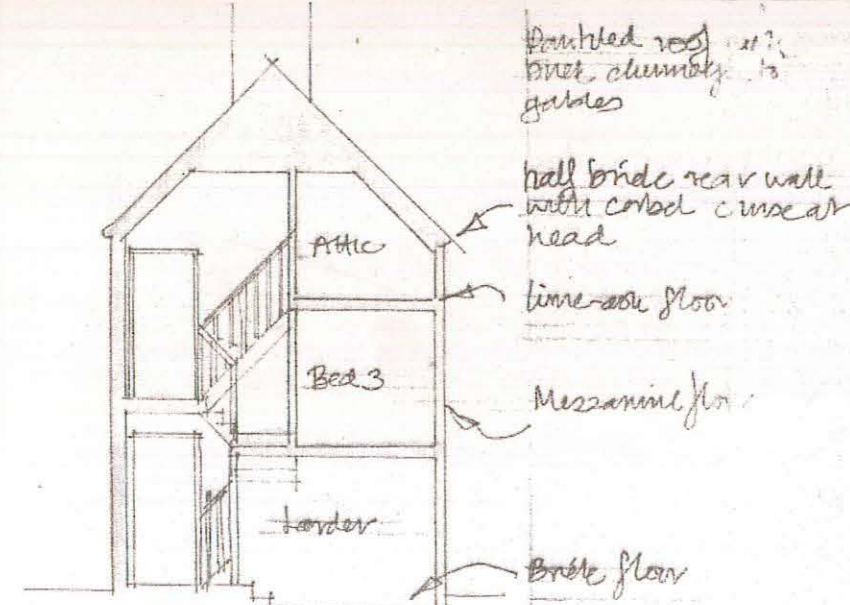 Pantiled roof with
brick chimney to
gables
half brick rear wall
with corbel course at
head
Attic
lime-ash floor
Bed 3
Mezzanine floor
Larder
Brick floor